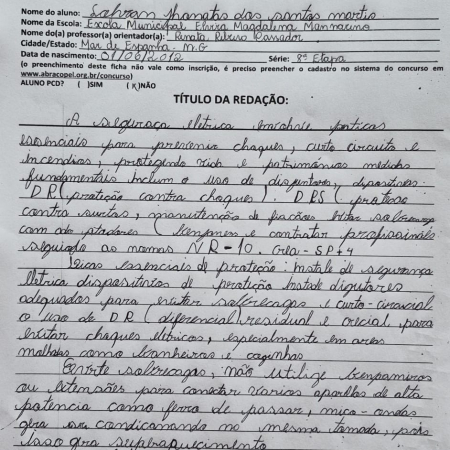 Nome do aluno: dos santos
Nome da Escola: Escola Municipal Elvira Magdalena Mannarino
Nome do(a) professor(a) orientador(a): Renata Ribeiro
Cidade/Estado: Mar de Espanha - M.G
Data de nascimento: 01/06/2012 Série: 8ª Etapa
(o preenchimento desta ficha não vale como inscrição, é preciso preencher o cadastro no sistema do concurso em
www.abracopel.org.br/concurso)
ALUNO PCD? ( )SIM (X)NÃO
TÍTULO DA REDAÇÃO:
A seguraça eletrica envolve praticas
essenciais para prevenir choques, curto circuito e
incendios, protegendo vida e patrimônios medidas
fundamentais incluem o uso de disjuntores, dispositivos:
DR (proteção contra choques). DPS (protese
contra surtos, manutenção de fiacões evitar sobrecarga
com adaptadores ( e contratar profissionais
seguindo as normas NR-10.
Dicas essenciais de proteção: Instale de segurança
eletrica dispositivos de proteção Instale disjutores
adequados para evitar sobrecagas e curto-circuito.
o uso de DR (diferencial) residual e crecial para
evitar choques elétricos, especialmente em areas
molhadas como banheiros e cozinhas
Evite sobrecagas, não utilize
ou extensões para conectar varios aparelhos de alta
potencia como ferro de passar, micro-ondas
condicionando na mesma tomada, pois
isso gera superaquecimento